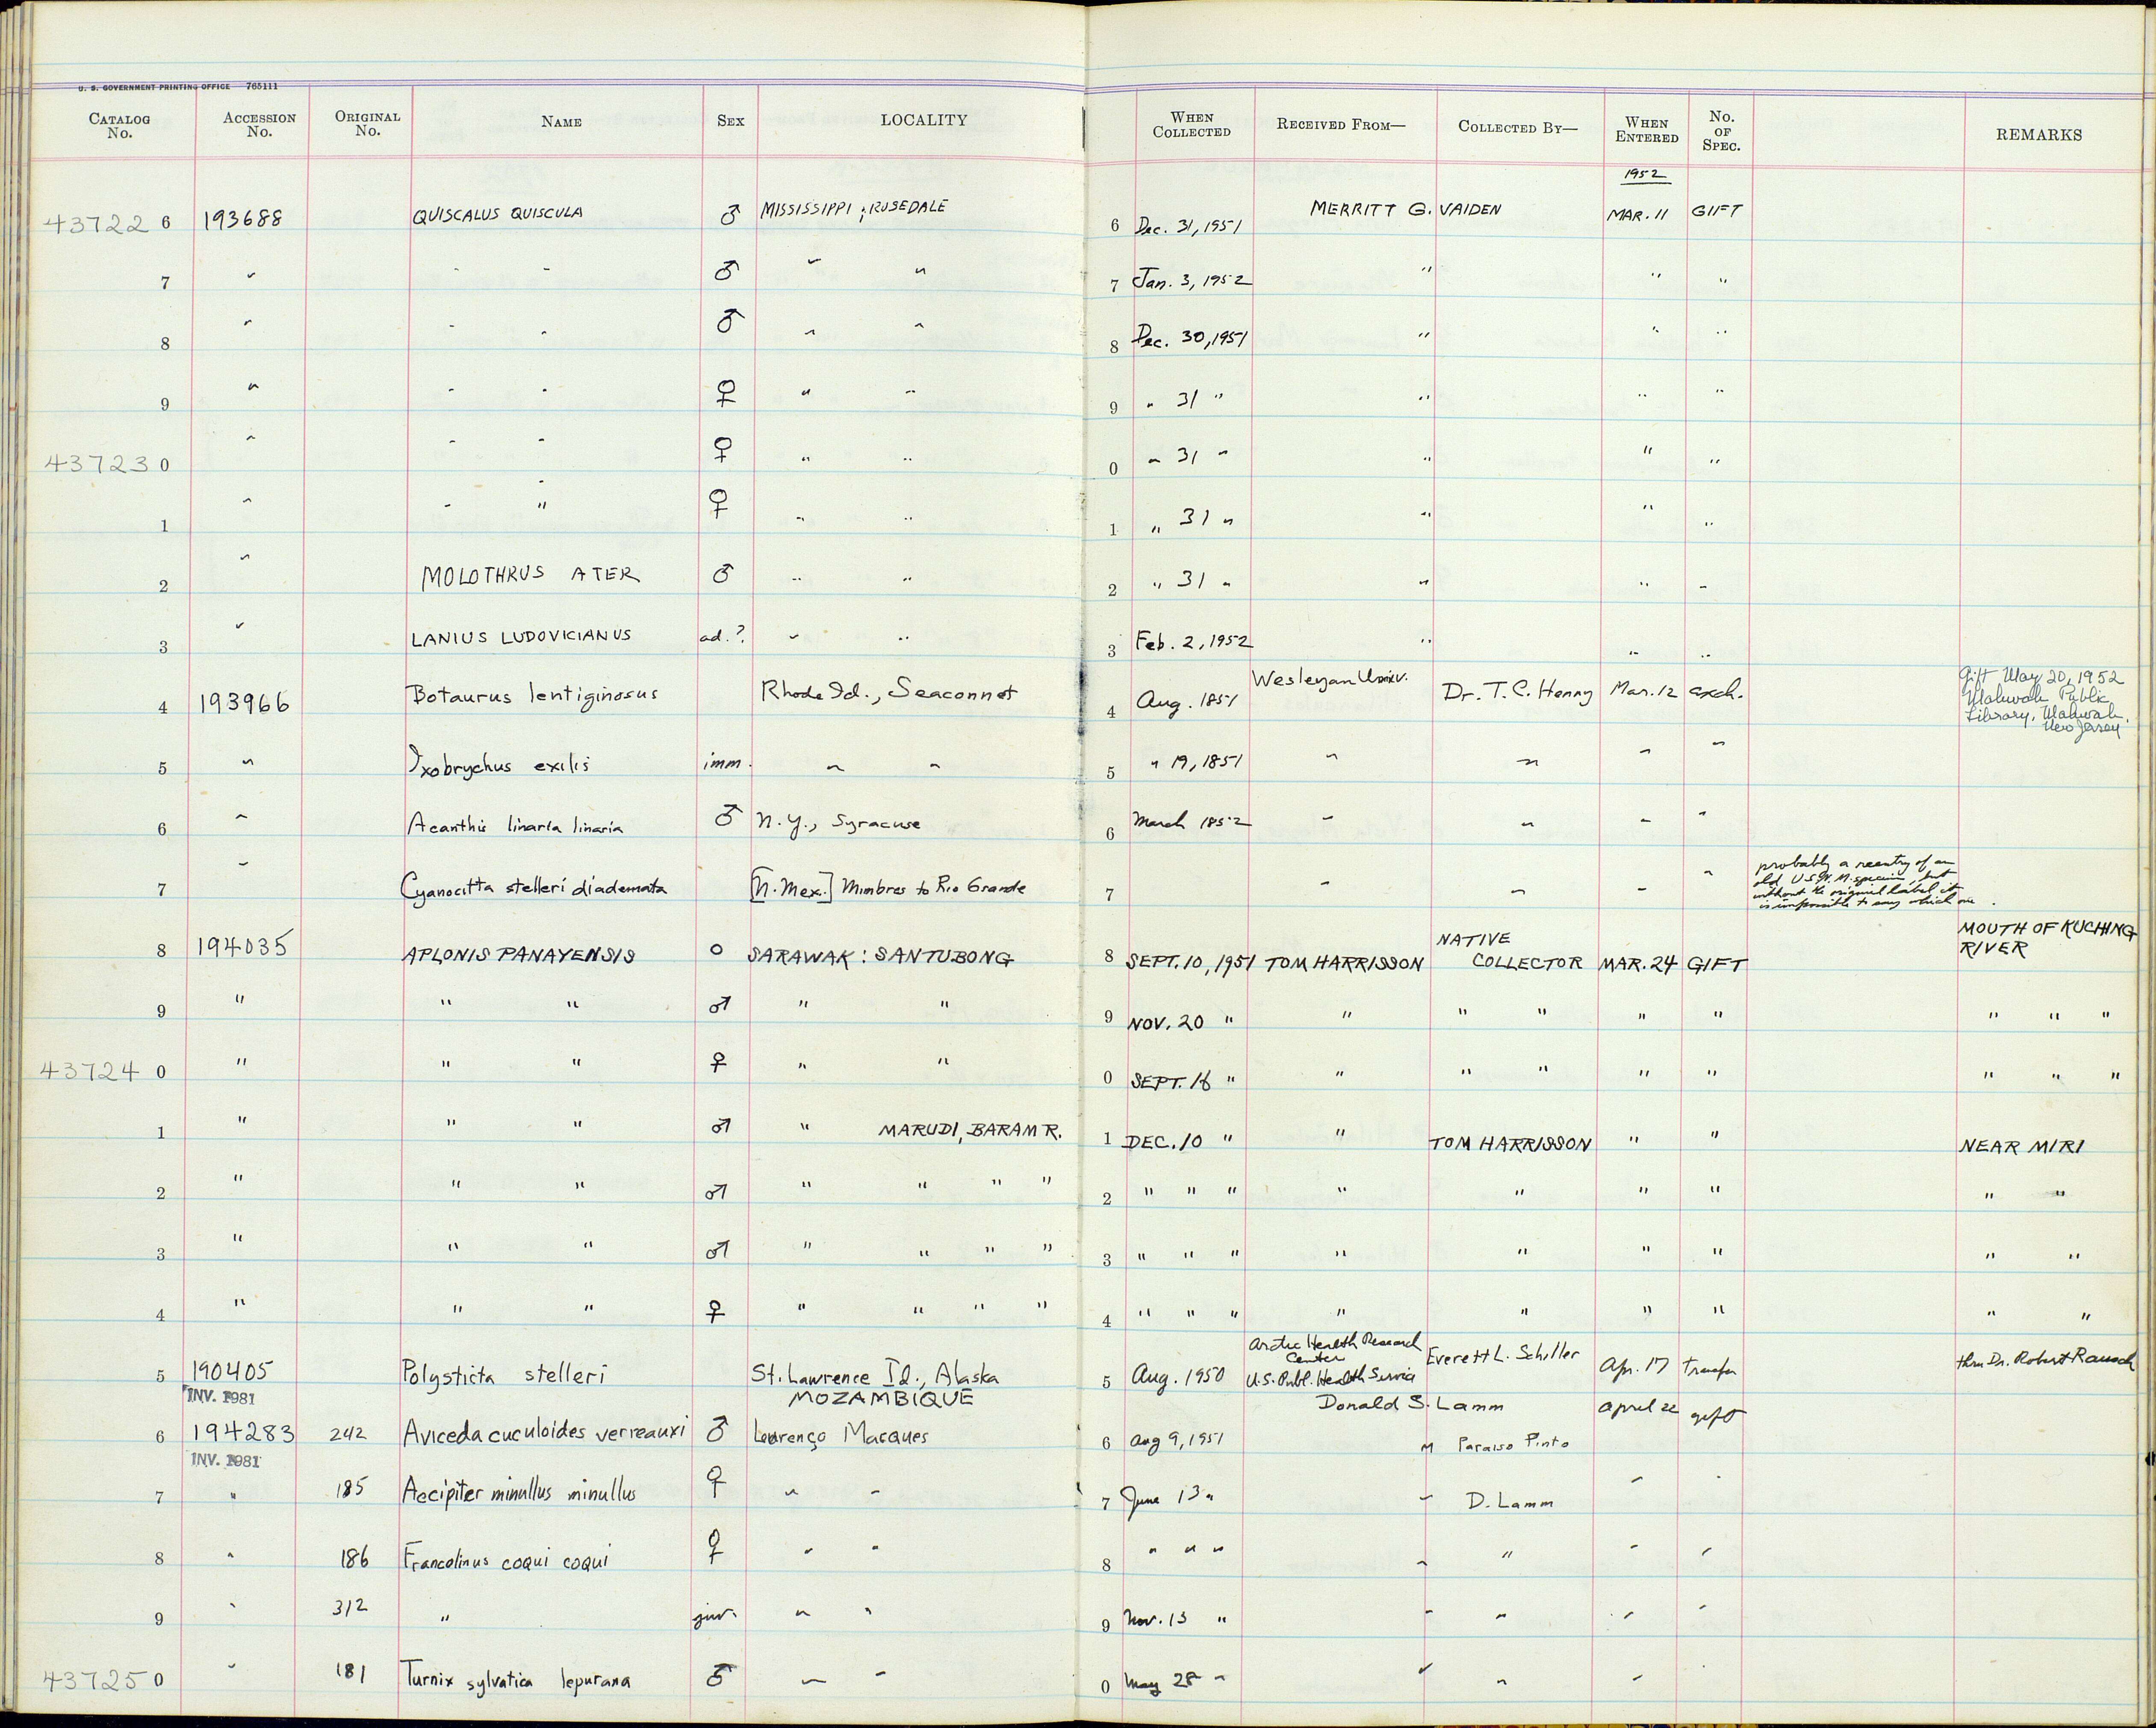 U. S. GOVERNMENT PRINTING OFFICE 765111
CATALOG No. ACCESSION No. ORIGINAL No. NAME SEX LOCALITY WHEN COLLECTED RECEIVED FROM— COLLECTED BY— WHEN ENTERED No. OF SPEC. REMARKS
1952
43722 6 193688 QUISCALUS QUISCULA ♂ MISSISSIPPI ; ROSEDALE 6 Dec. 31, 1951 MERRITT G. VAIDEN MAR. 11 GIFT
7 " " " ♂ " " 7 Jan. 3, 1952 " " "
8 " " " ♂ " " 8 Dec. 30, 1951 " " "
9 " " " ♀ " " 9 " 31 " " " "
43723 0 " " " ♀ " " 0 " 31 " " " "
1 " " " ♀ " " 1 " 31 " " " "
2 " MOLOTHRUS ATER ♂ " " 2 " 31 " " " "
3 " LANIUS LUDOVICIANUS ad. ? " " 3 Feb. 2, 1952 " " "
4 193966 Botaurus lentiginosus Rhode Id., Seaconnet 4 Aug. 1851 Wesleyan Univ. Dr. T. C. Henry Mar. 12 exch. Gift May 20, 1952
Mahwah Public
Library, Mahwah,
New Jersey
5 " Ixobrychus exilis imm. " " 5 " 19, 1851 " " " "
6 " Acanthis linaria linaria ♂ N.Y., Syracuse 6 March 1852 " " " "
7 " Cyanocitta stelleri diademata [N. Mex.] Mimbres to Rio Grande 7 " " " " probably a reentry of an
old U.S.N.M. specimen, but
without the original label it
is impossible to say which one.
8 194035 APLONIS PANAYENSIS o SARAWAK : SANTUBONG 8 SEPT. 10, 1951 TOM HARRISSON NATIVE COLLECTOR MAR. 24 GIFT MOUTH OF KUCHING RIVER
9 " " " ♂ " " 9 NOV. 20 " " " " " " " " "
43724 0 " " " ♀ " " 0 SEPT. 16 " " " " " " " " "
1 " " " ♂ " MARUDI, BARAM R. 1 DEC. 10 " " TOM HARRISSON " " NEAR MIRI
2 " " " ♂ " " " " 2 " " " " " " " " "
3 " " " ♂ " " " " 3 " " " " " " " " "
4 " " " ♀ " " " " 4 " " " " " " " " "
5 190405 Polysticta stelleri St. Lawrence Id., Alaska 5 Aug. 1950 Arctic Health Research Center U.S. Publ. Health Service Everett L. Schiller Apr. 17 Transfer thru Dr. Robert Rausch
INV. 1981 MOZAMBIQUE
6 194283 242 Aviceda cuculoides verreauxi ♂ Lourenço Marques 6 Aug 9, 1951 Donald S. Lamm " Paraiso Pinto April 22 gift
INV. 1981
7 " 185 Accipiter minullus minullus ♀ " " 7 June 13 " " D. Lamm " "
8 " 186 Francolinus coqui coqui ♀ " " 8 " " " " " " "
9 " 312 " juv. " " 9 Nov. 13 " " " " "
43725 0 " 181 Turnix sylvatica lepurana ♂ " " 0 May 28 " " " "